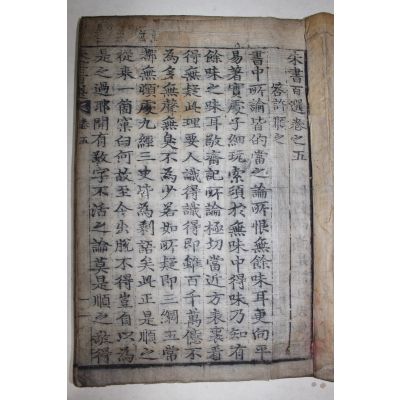 朱書百選卷之五
答許順之
書中所論皆的當之論所恨無餘味耳更向平
易著實處子細玩索須於無味中得味乃知有
餘味之味耳敬齋記所論極切當近方表裏看
得無疑此理要人識得識得即雖百千萬億不
為多無聲無臭不為少若如所疑即三綱五常
都無頓處九經三史皆為剩語矣此正是順之
從來一箇窠臼何故至今出脫不得豈自以為
是之過耶聞有敬字不活之論莫是順之敬得
卷五